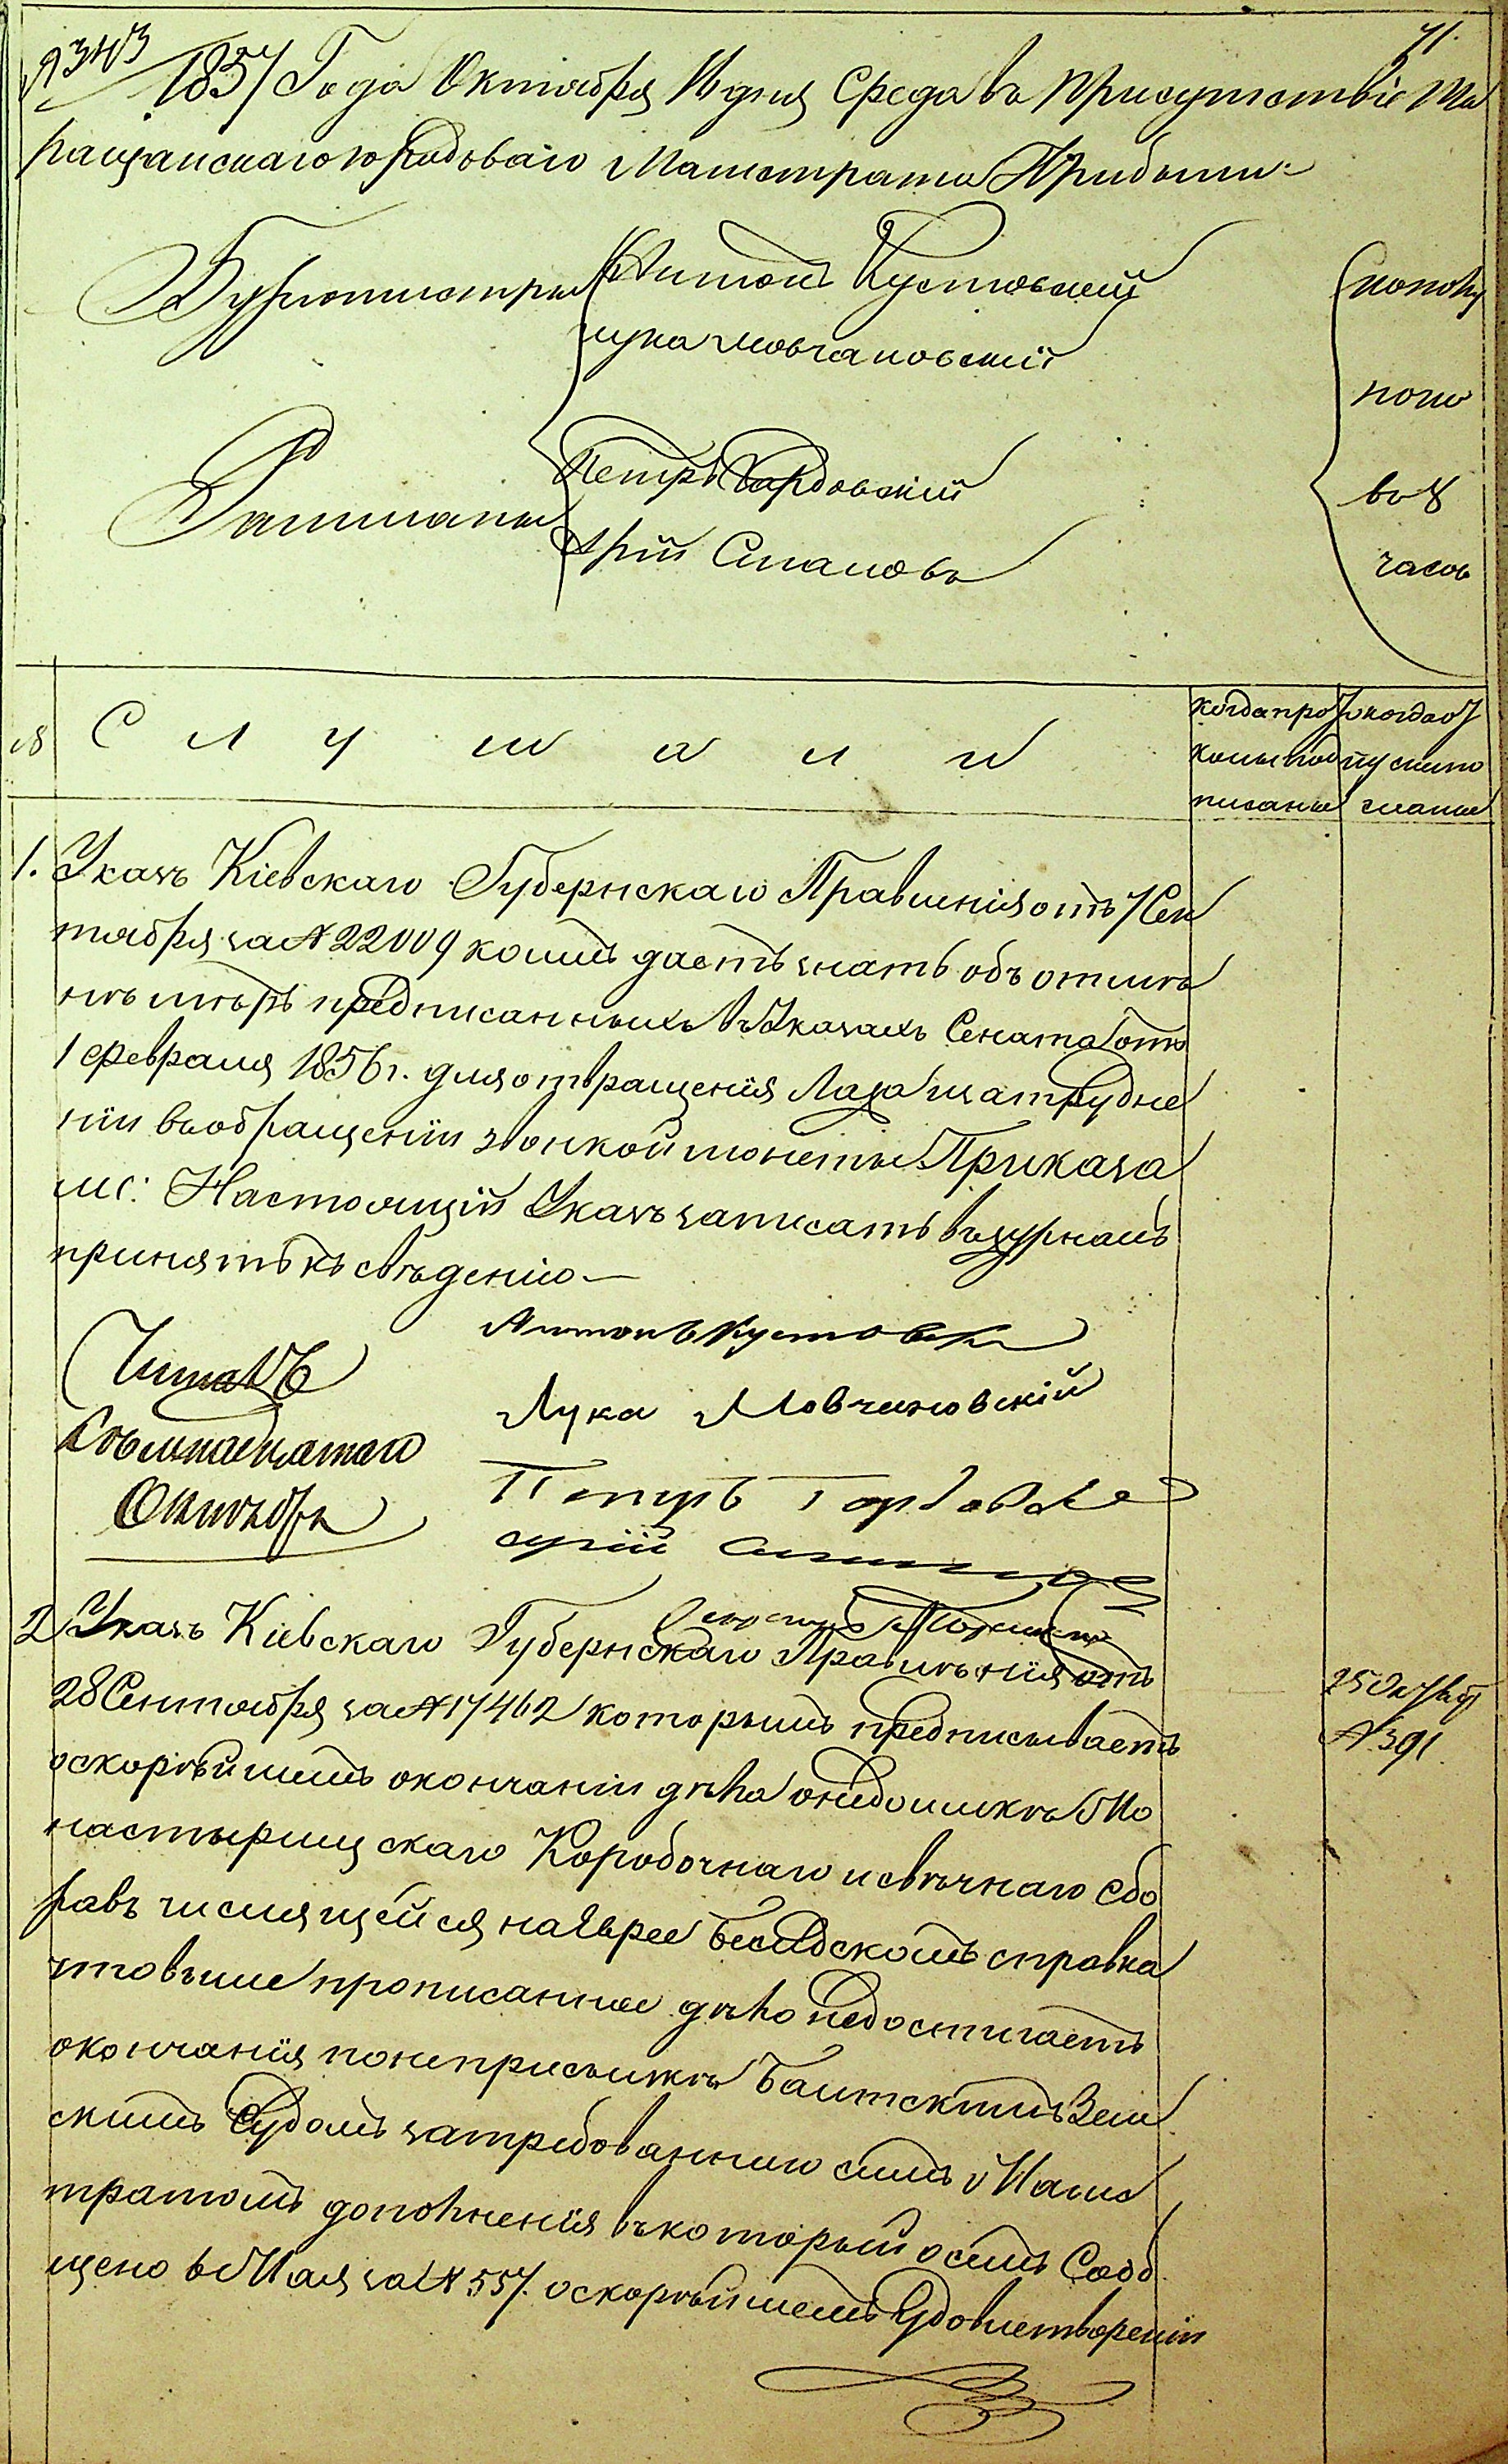 № 343
71.
1857 Года Октября дня Среда въ Присутствіе Та
ращанскаго городоваго Магистрата Прибыли
Бургомистры Антонъ Кустовскій
Лука Мовчановскій
Ратманы Петръ Гордовскій
Юрій
пополу
ночи
въ 8
часов
№ С л у ш а л и
когда про
колы под
писаны
и когда от
пуски по
сланы
1. Указъ Кіевскаго Губернскаго Правленія отъ 7 Сен
тября за № 22009 коимъ даетъ знать объ отмѣ
нѣ мѣръ предписанныхъ въ Указахъ Сената отъ
1 февраля 1856 г. для отвращенія Лажа и затрудне
ніи въ обращеніи звонкой монеты Приказа
ли: Настоящій Указъ записать въ журналъ
принять къ свѣденію —
Читалъ
Октября
Антонъ Кустовск
Лука Мовчановскій
Петръ Гордовске
юрій
Секретарь
2 Указъ Кіевскаго Губернскаго Правленія отъ
28 Сентября за № 17462 которымъ предписываетъ
о скорѣйшемъ окончаніи дѣла о недоимкѣ Мо
настырищскаго Коробочнаго и свѣчнаго сбо
равъ числящейся на Еврее справка
что выше прописанное дѣло недостигаетъ
окончанія по неприсылкѣ Балтскимъ Зем
скимъ Судомъ затребованнаго симъ Магис
тратомъ дополненія въ который о семъ Сооб
щено въ Мая за № 557. о скорѣйшемъ Удовлетвореніи
25 Октяб
№ 391